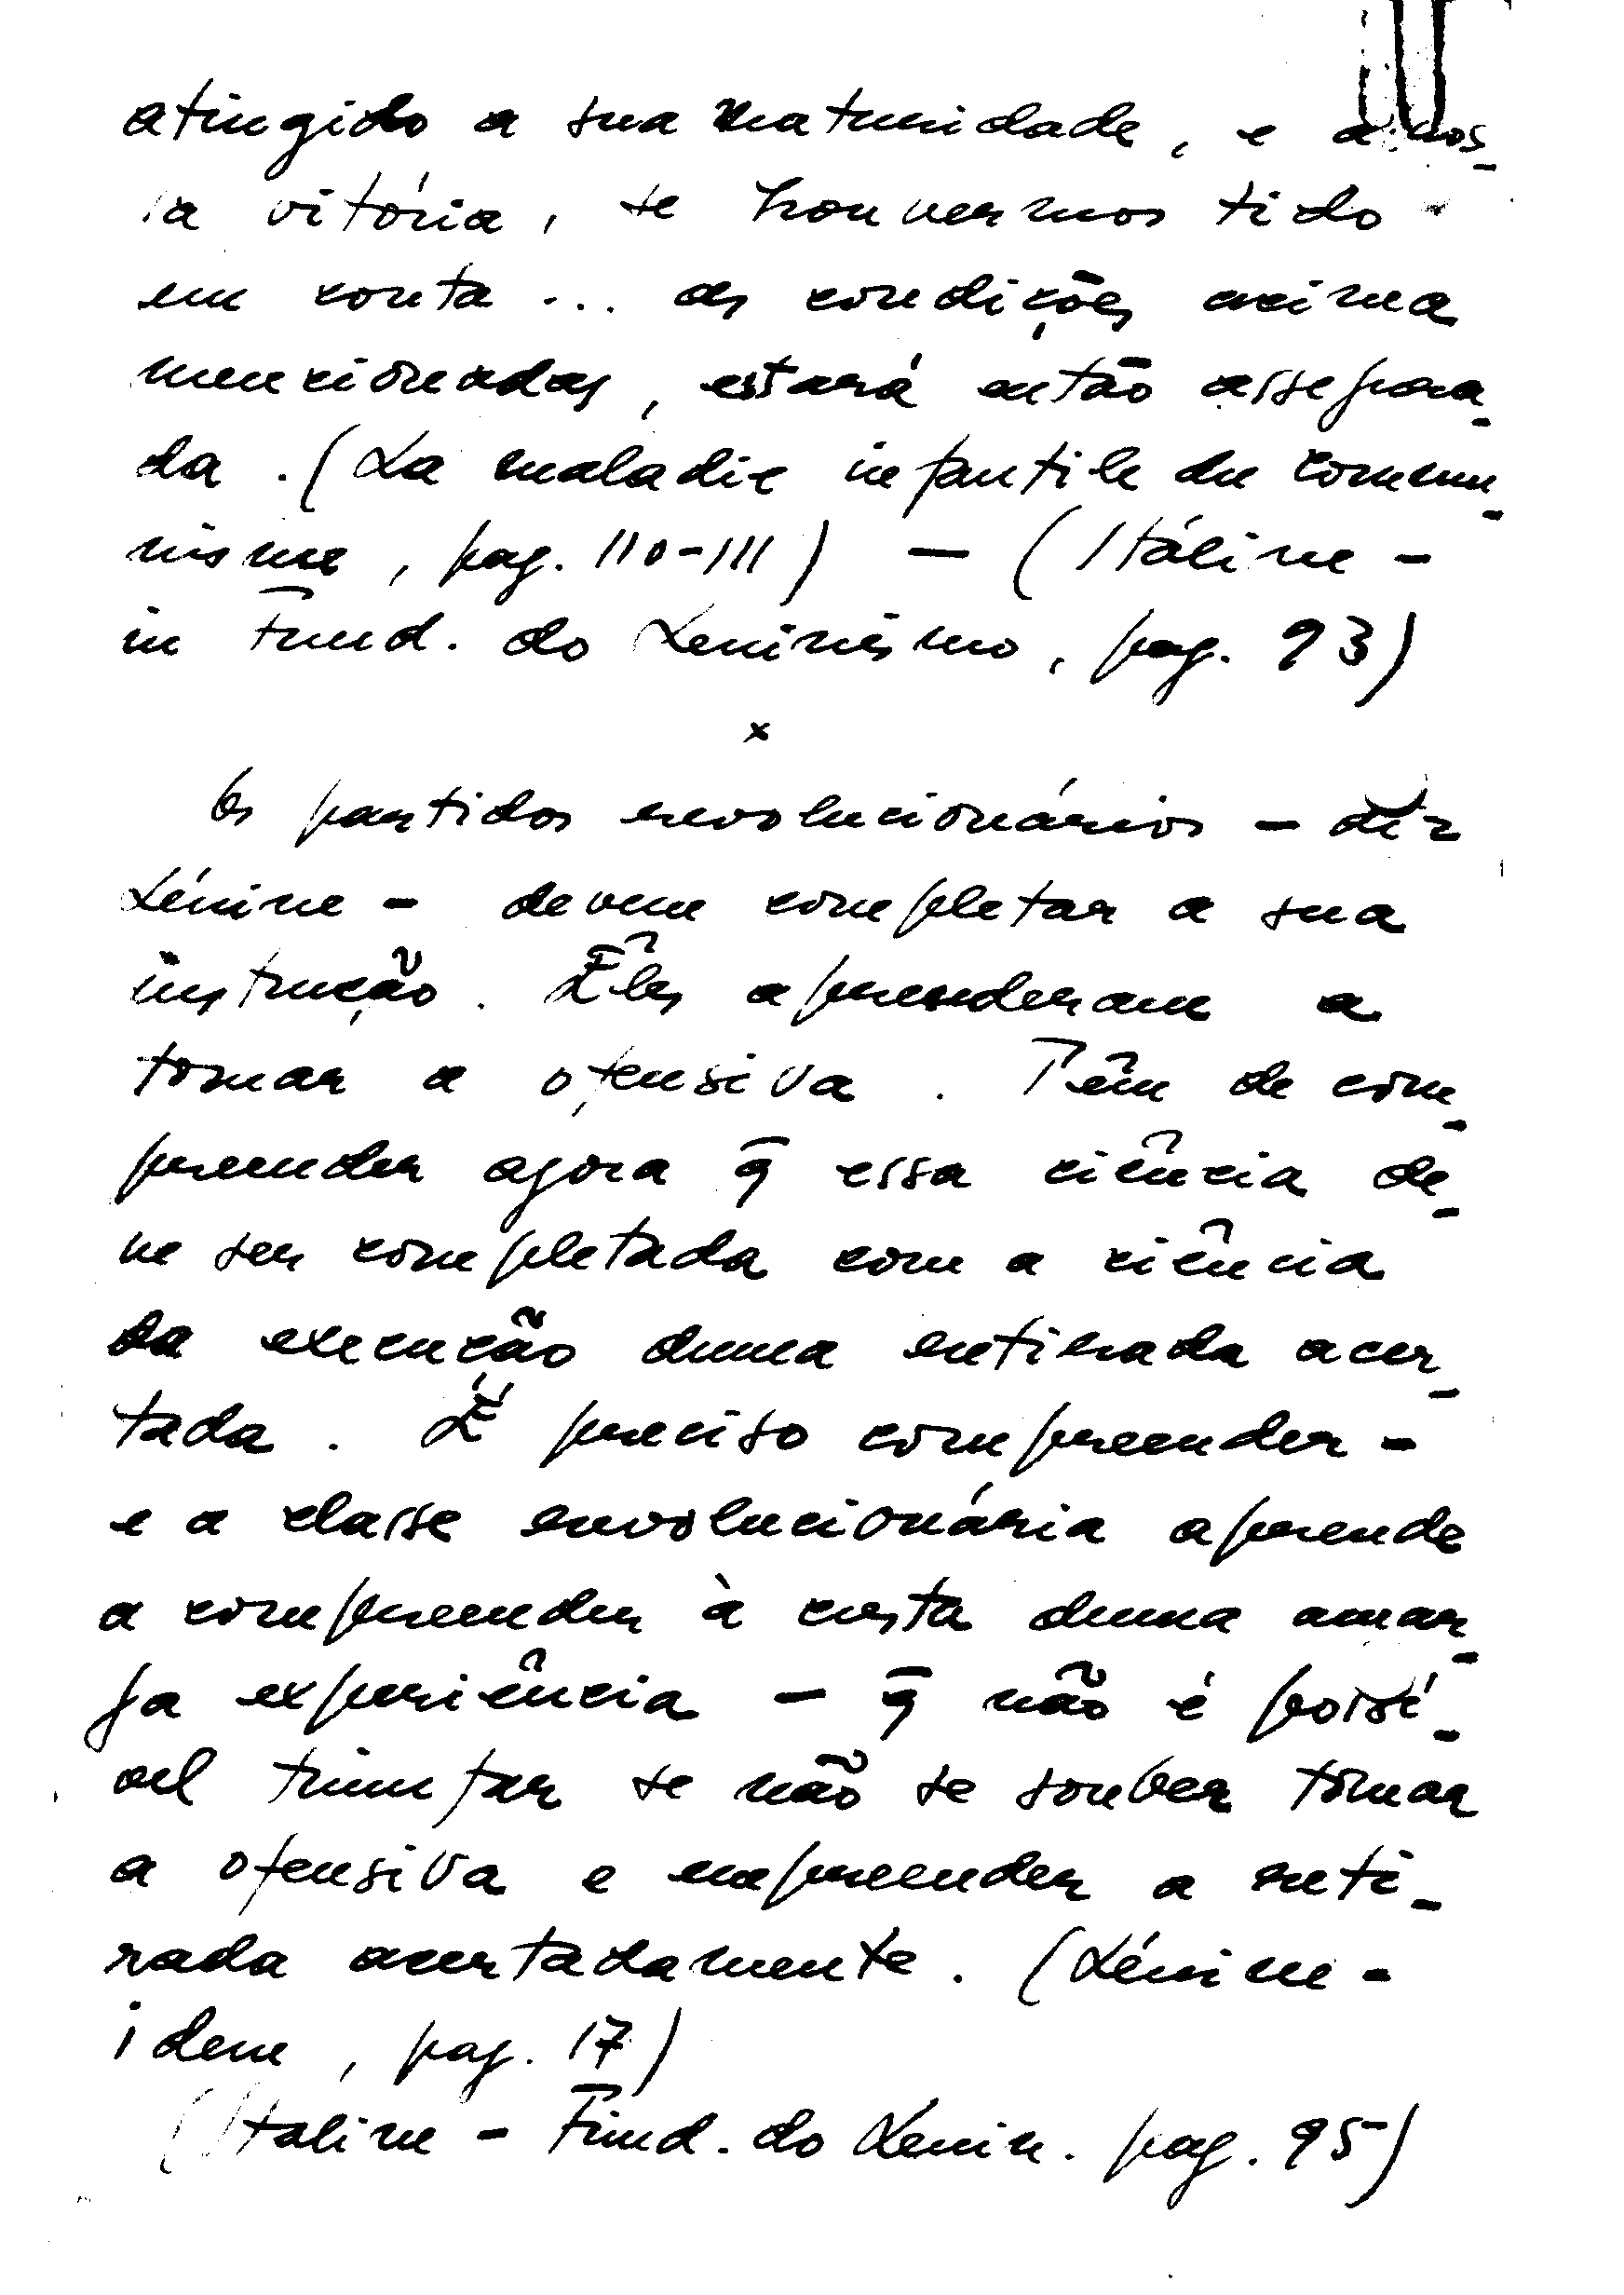 atingido a sua maturidade, e a nos-
sa vitória, se houvermos tido
em conta ... as condições acima
mencionadas, estará então assegura-
da. (La maladie infantile du commu-
nisme, pag. 110-111) — (Stáline -
in Fund. do Leninismo, pag. 93)
x
Os partidos revolucionários - diz
Lénine - devem completar a sua
instrução. Êles aprenderam a
tomar a ofensiva. Têm de com-
preender agora q̄ essa ciência de-
ve ser completada com a ciência
da execução duma retirada acer-
tada. É preciso compreender -
e a classe revolucionária aprende
a compreender à custa duma amar-
ga experiência - q̄ não é possí-
vel triunfar se não se souber tomar
a ofensiva e empreender a reti-
rada acertadamente. (Lénine -
idem, pag. 17)
(Staline - Fund. do Lenin. pag. 95)